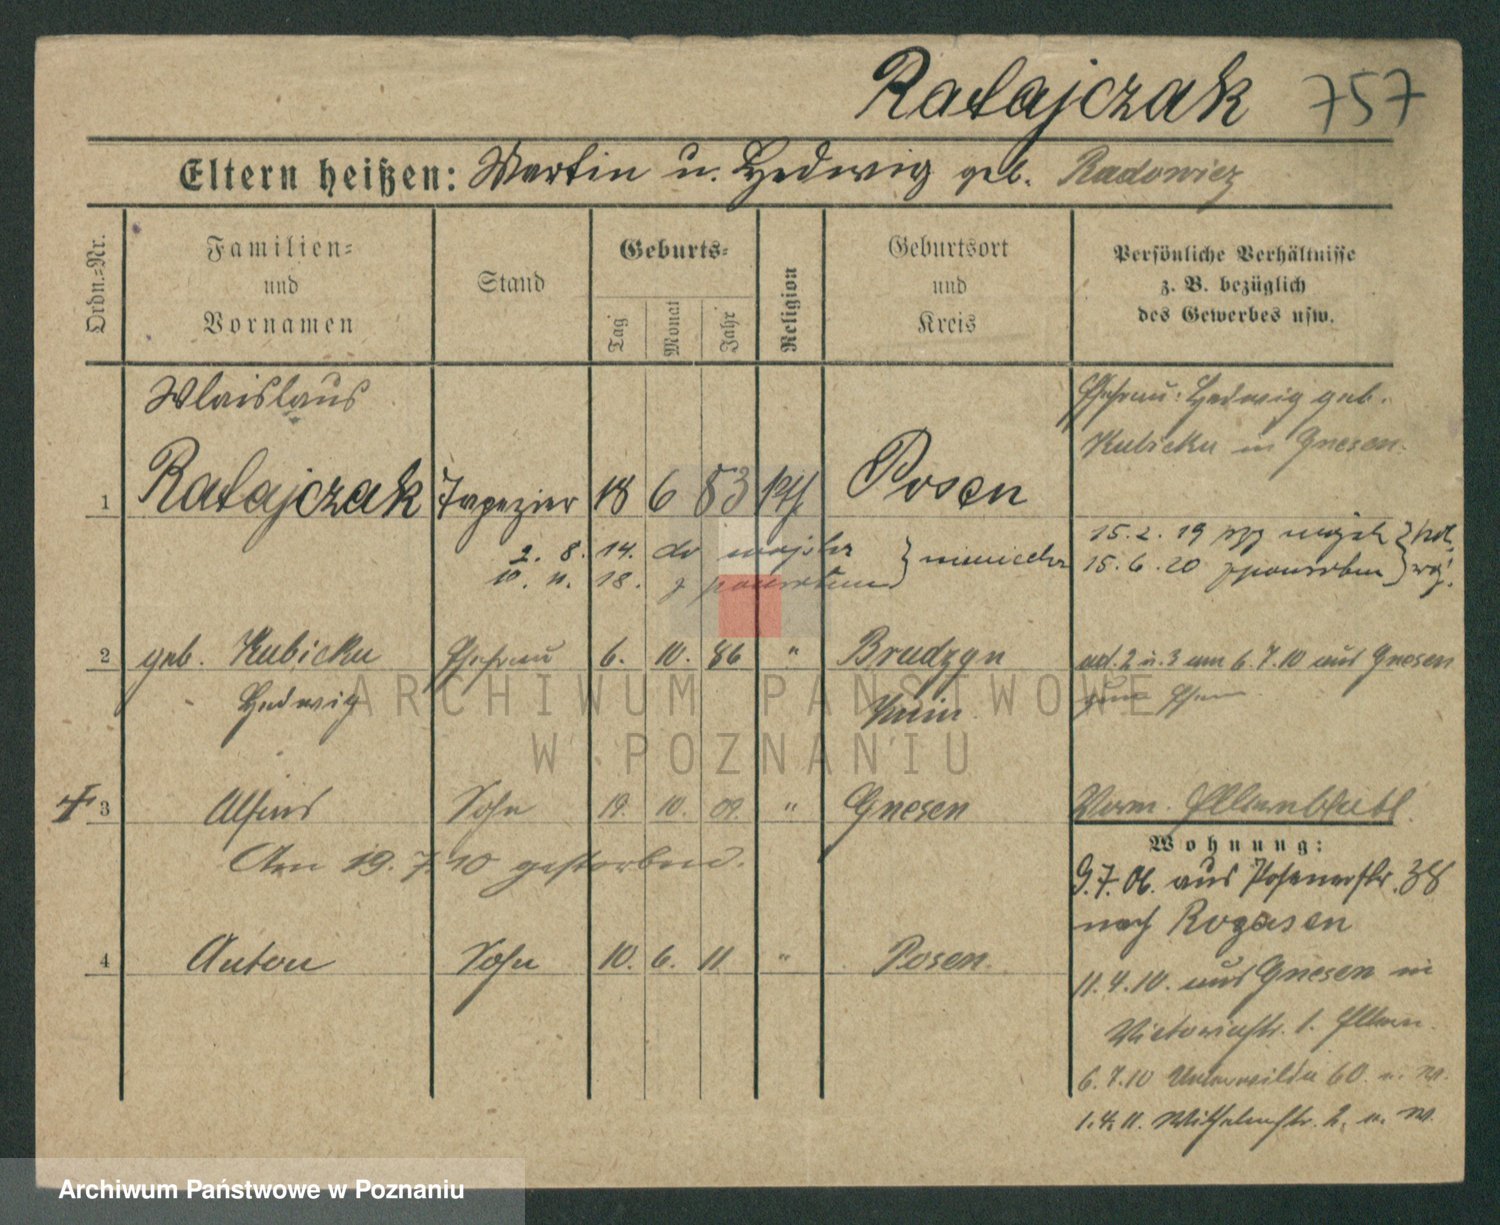 Ratajczak 757
Eltern heißen: Martin u. Hedwig geb. Radowicz
Ordn.=Nr.
Familien=
und
Vornamen
Stand
Geburts=
Tag
Monat
Jahr
Religion
Geburtsort
und
Kreis
Persönliche Verhältnisse
z. B. bezüglich
des Gewerbes usw.
Wlaislaus
Ehefrau: Hedwig geb.
Kubicka in Gnesen.
1 Ratajczak Tapezier 18 6 83 kth Posen
2. 8. 14. do wojska } niemiecka
10. 11. 18. z powrotem
15. 2. 19 wojsk } pol.
15. 6. 20 z powrotem } woj.
2 geb. Kubicka Ehefrau 6. 10. 86 " Brudzyn
Hedwig
Znin
ad. 2 u. 3 am 6. 7. 10 aus Gnesen
3 Alfons Sohn 19. 10. 09. " Gnesen
Am 19. 7. 10 gestorben.
Wohnung:
9. 7. 06. aus Posenerstr. 38
nach Rogasen
4 Anton Sohn 10. 6. 11 " Posen.
11. 4. 10. aus Gnesen in
Victoriastr. 1. Eltern.
6. 7. 10 Unterwilda 60. n. W.
1. 4. 11. Wilhelmstr. 2. n. W.
ARCHIWUM PAŃSTWOWE
W POZNANIU
Archiwum Państwowe w Poznaniu